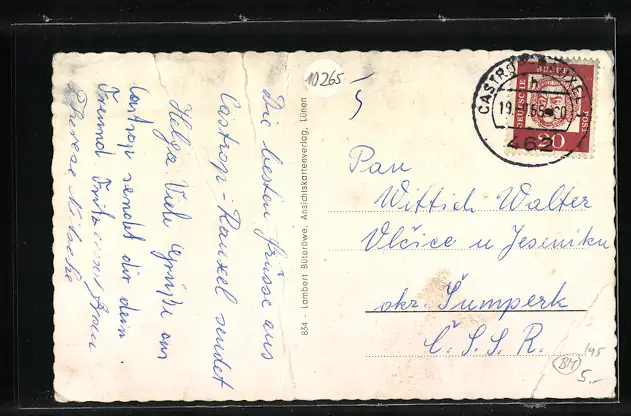 Die besten Grüsse aus
Castrop-Rauxel sendet
Helga. Viele Grüße aus
Castrop sendet dir dein
Freund Fritz
1D265
834 - Lambert Büteröwe, Ansichtskartenverlag, Lünen
CASTROP
462
DEUTSCHE BUNDESPOST
20
Pan
Wittich Walter
Vlčice u Jeseníku
okr. Šumperk
Č.S.S.R.
195
BM
5.-